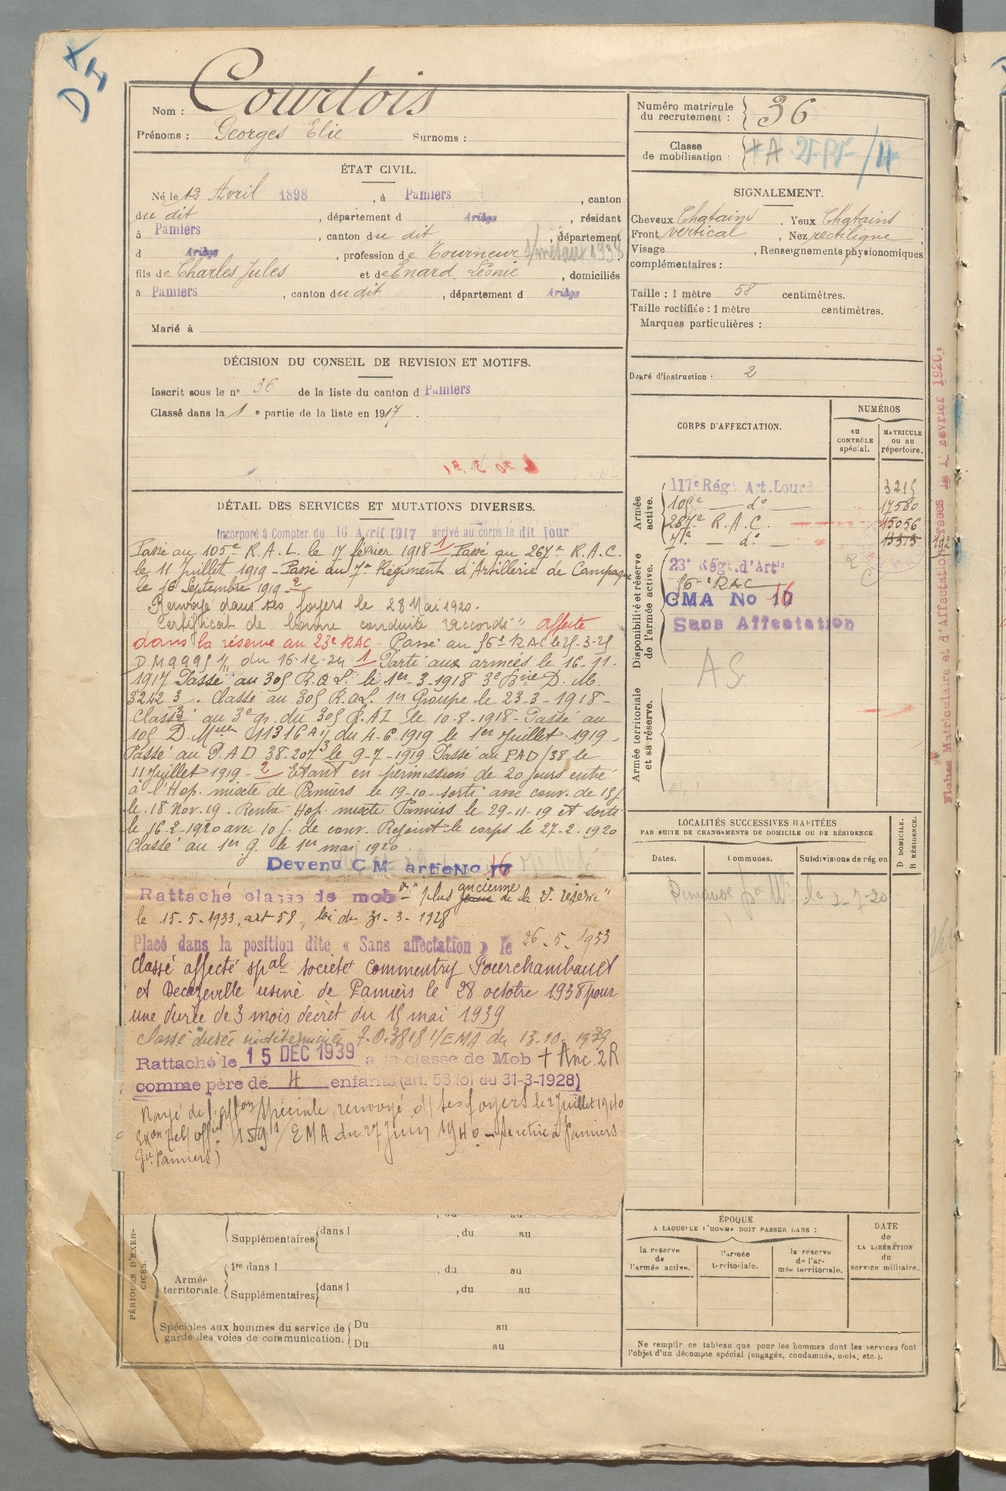 Nom : Courtois
Prénoms : Georges Elie Surnoms :
ÉTAT CIVIL.
Né le 12 Avril 1898, à Pamiers, canton
du dit, département d Ariège, résidant
à Pamiers, canton du dit, département
d Ariège, profession de Tourneur s/métaux 1938
fils de Charles Jules et de Enard Léonie, domiciliés
à Pamiers, canton du dit, département d Ariège
Marié à
DÉCISION DU CONSEIL DE REVISION ET MOTIFS.
Inscrit sous le n° 36 de la liste du canton d Pamiers
Classé dans la 1 e partie de la liste en 1917.
DÉTAIL DES SERVICES ET MUTATIONS DIVERSES.
Incorporé à Compter du 16 Avril 1917 arrivé au corps le dit jour
Passé au 105e R.A.L. le 17 février 1918 1 Passé au 267e R.A.C.
le 11 Juillet 1919 - Passé au 7e Régiment d'Artillerie de Campagne
le 16 Septembre 1919 - 2
Renvoyé dans ses foyers le 28 Mai 1920.
Certificat de bonne conduite "accordé" affecté
dans la réserve au 23e RAC - Passé au 56e RAC le 25-3-25
DM 9995 1/11 du 16-12-24 1 Parti aux armées le 16-11-
1917 Passé au 305 R.A.L. le 1er-3-1918 3e Brie D.M.
3242 3. Classé au 305 R.A.L. 1er Groupe le 23-3-1918-
Classé au 3e gr. du 305 R.A.L. le 10-8-1918 - Passé au
105 D. Melle 11316 A 1/11 du 4-6-1919 le 1er Juillet 1919-
Passé au P.A.D 38.267 3 le 9-7-1919 Passé au PAD/38 le
11 Juillet 1919 - 2 Etant en permission de 20 jours entré
à l'Hop. mixte de Pamiers le 19-10- sorti avec conv. de 15 j
le 18 Nov. 19. Rentré Hop. mixte Pamiers le 29-11-19 et sorti
le 16-2-1920 avec 10 j. de conv. Rejoint le corps le 27-2-1920
Classé au 1er g. le 1er mai 1920
Devenu C M artie No 17 16
Rattaché classe de mob "plus ancienne de la 2e réserve"
le 15-5-1933, art 58, loi du 31-3-1928
Placé dans la position dite « Sans affectation » le 26-5-1933
Classé affecté spal société Commentry Fourchambault
et Decazeville usine de Pamiers le 28 octobre 1938 pour
une durée de 3 mois décret du 15 mai 1939
Classé durée indéterminée I.O. 3818 1/EMA du 13-10-1939
Rattaché le 15 DEC 1939 à la classe de Mob + Anc. 2R
comme père de 4 enfants (art. 58 loi du 31-3-1928)
Rayé de l'affon spéciale, renvoyé ds ses foyers le 2 juillet 1940
1519 1/EMA du 27 Juin 1940 - se retire à Pamiers
Pamiers)
PÉRIODES D'EXERCICES.
Supplémentaires dans l , du au
Armée territoriale.
1re dans l , du au
Supplémentaires dans l , du au
Spéciales aux hommes du service de garde des voies de communication.
Du au
Du au
Numéro matricule du recrutement : 36
Classe de mobilisation :
SIGNALEMENT.
Cheveux Chatains, Yeux Chatains
Front vertical, Nez rectiligne
Visage , Renseignements physionomiques
complémentaires :
Taille : 1 mètre 58 centimètres.
Taille rectifiée : 1 mètre centimètres.
Marques particulières :
Degré d'instruction : 2
CORPS D'AFFECTATION.
NUMÉROS
au contrôle spécial.
matricule ou au répertoire.
Armée active.
117e Rég. Art. Lourd 3215
105e - do 17580
267e R.A.C. 15056
7e - do
Disponibilité et réserve de l'armée active.
23e Rég. d'Artie
56e RAC
CMA No 10 16
Sans Affectation
AS
Armée territoriale et sa réserve.
LOCALITÉS SUCCESSIVES HABITÉES
PAR SUITE DE CHANGEMENTS DE DOMICILE OU DE RÉSIDENCE.
Dates. Communes. Subdivisions de région
D DOMICILE. R RÉSIDENCE.
le 2-7-20
ÉPOQUE
A LAQUELLE L'HOMME DOIT PASSER DANS :
la réserve de l'armée active.
l'armée territoriale.
la réserve de l'armée territoriale.
DATE de LA LIBÉRATION du service militaire.
Ne remplir ce tableau que pour les hommes dont les services font
l'objet d'un décompte spécial (engagés, condamnés, omis, etc.).